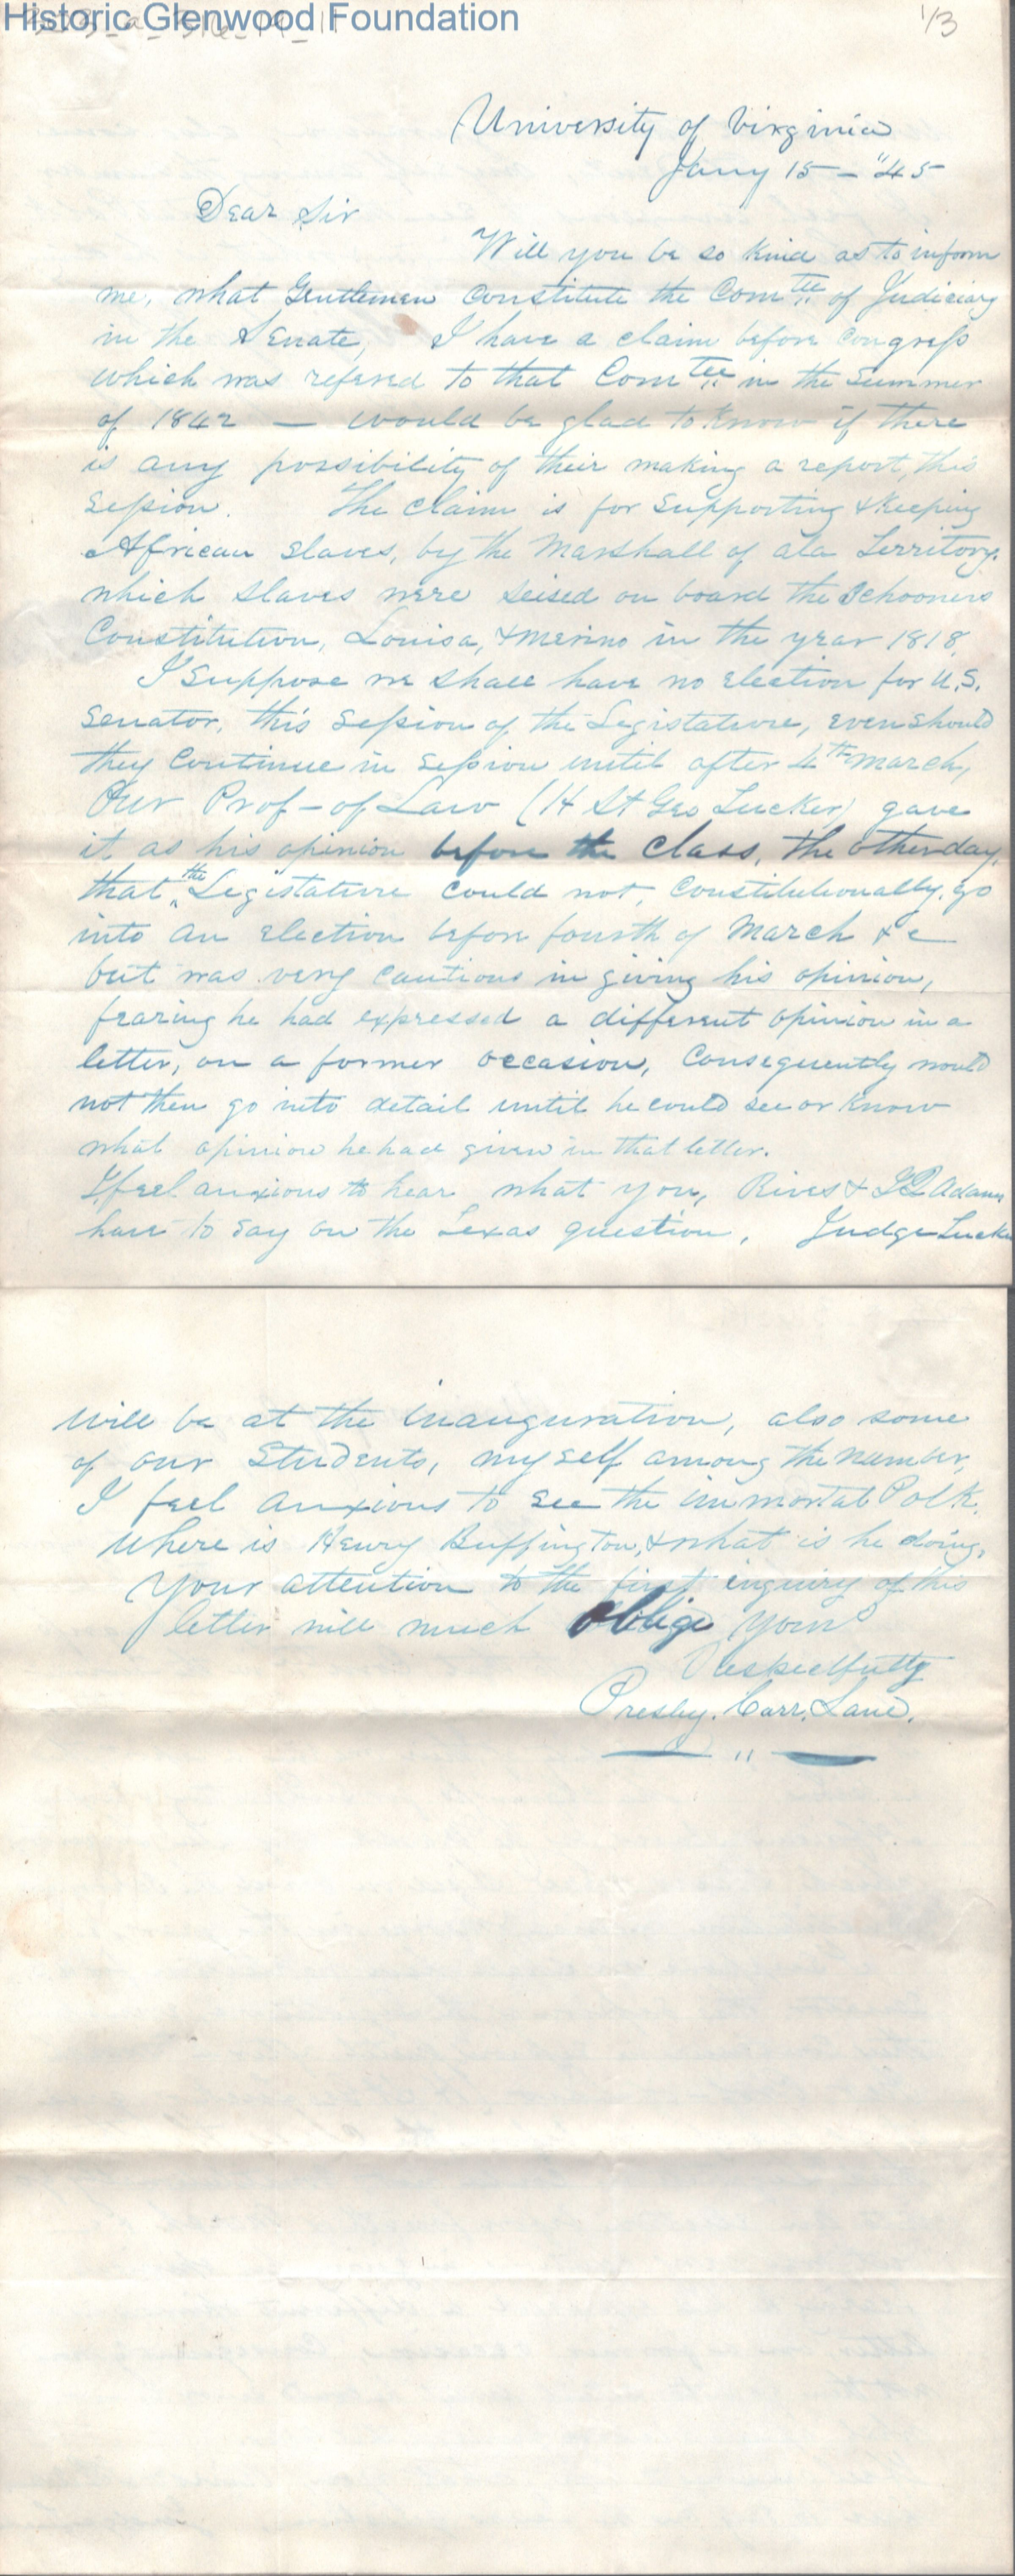 Historic Glenwood Foundation
1/3
University of Virginia
Jany 15 – "45
Dear Sir
Will you be so kind as to inform
me, what Gentlemen constitute the Comtee of Judiciary
in the Senate, I have a claim before Congress
which was refered to that Comtee in the Summer
of 1842 — would be glad to know if there
is any possibility of their making a report, this
Session. The claim is for supporting & keeping
African slaves, by the Marshall of ala Territory.
which slaves were seised on board the Schooners
Constitution, Louisa, & Merino in the year 1818.
I suppose we shall have no election for U.S.
Senator, this Session of the Legistature, even should
they continue in Session until after 4th March,
Our Prof – of Law (H St Geo Tucker) gave
it as his opinion before the class, the other day,
that the Legistature could not, Constitutionally, go
into an election before fourth of March &c
but was very cautious in giving his opinion,
fearing he had expressed a different opinion in a
letter, on a former occasion, Consequently would
not then go into detail until he could see or know
what opinion he had given in that letter.
I feel anxious to hear what you, Rives & J Q Adams
have to say on the Texas question, Judge Tucker
will be at the inauguration, also some
of our Students, myself among the number,
I feel anxious to see the immortal Polk.
Where is Henry Buffington, & what is he doing,
Your attention to the first inquiry of this
letter will much oblige yours
Respectfully
Presley. Carr. Lane.